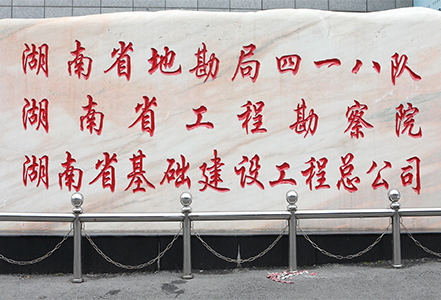 湖南省地勘局四一八队
湖南省工程勘察院
湖南省基础建设工程总公司